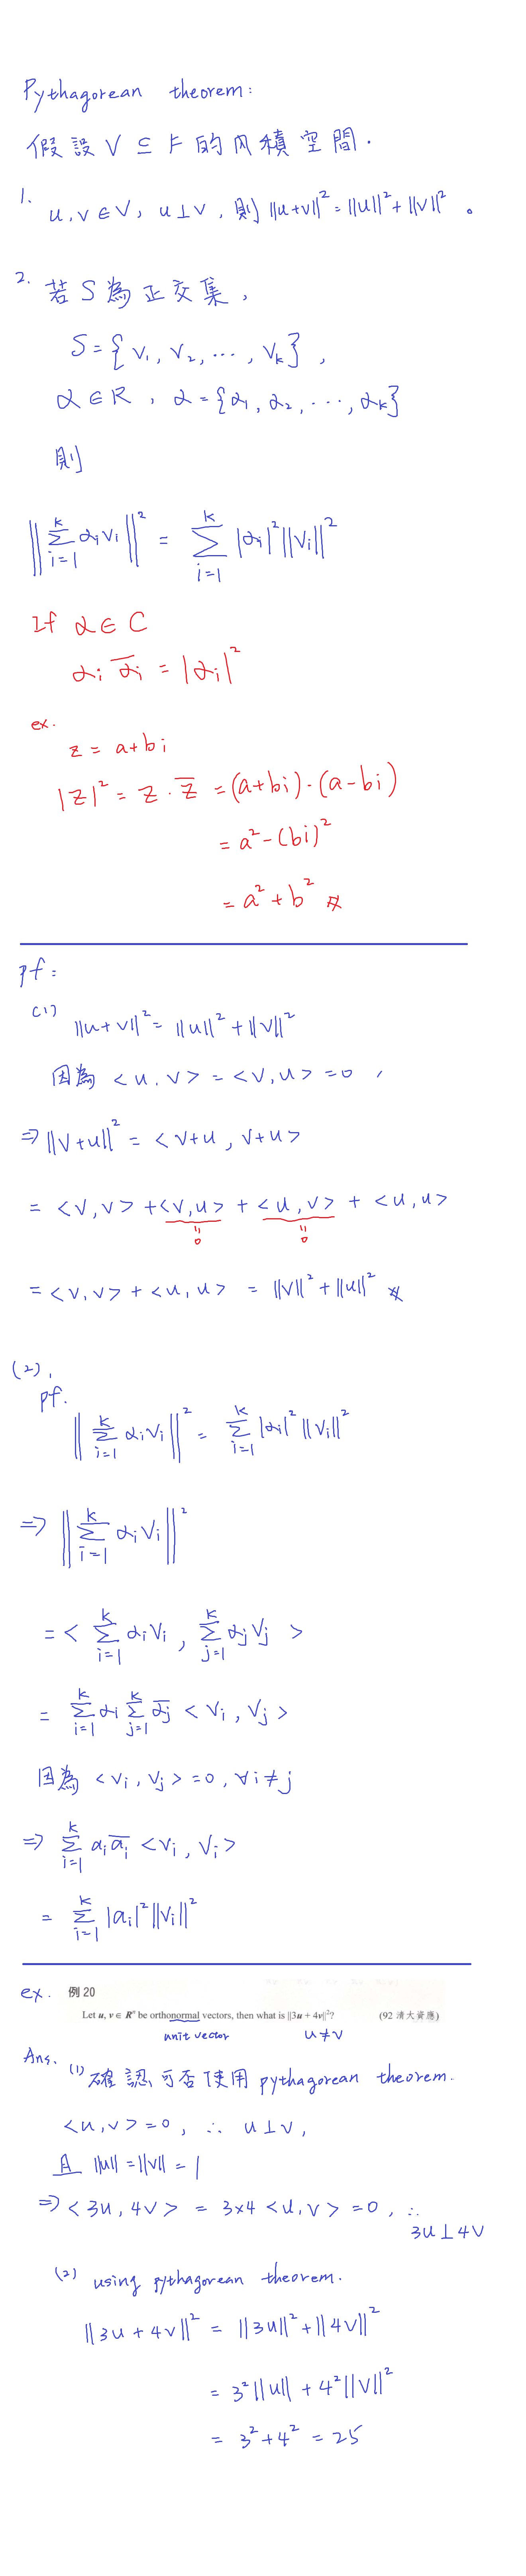 Pythagorean theorem:
假設 V ⊆ F 的內積空間.
1. u, v ∈ V, u ⊥ v, 則 ||u+v||² = ||u||² + ||v||² 。
2. 若 S 為正交集,
S = {v₁, v₂, ..., vₖ},
α ∈ R, α = {α₁, α₂, ..., αₖ}
則
||∑_{i=1}^{k} αᵢvᵢ||² = ∑_{i=1}^{k} |αᵢ|² ||vᵢ||²
If α ∈ C
αᵢ \overline{αᵢ} = |αᵢ|²
ex.
z = a+bi
|z|² = z · \overline{z} = (a+bi)·(a-bi)
= a² - (bi)²
= a² + b² ※
pf:
(1) ||u+v||² = ||u||² + ||v||²
因為 <u,v> = <v,u> = 0 ,
⇒ ||v+u||² = <v+u, v+u>
= <v,v> + <v,u> + <u,v> + <u,u>
= 0 = 0
= <v,v> + <u,u> = ||v||² + ||u||² ※
(2),
pf. ||∑_{i=1}^{k} αᵢvᵢ||² = ∑_{i=1}^{k} |αᵢ|² ||vᵢ||²
⇒ ||∑_{i=1}^{k} αᵢvᵢ||²
= < ∑_{i=1}^{k} αᵢvᵢ, ∑_{j=1}^{k} αⱼvⱼ >
= ∑_{i=1}^{k} αᵢ ∑_{j=1}^{k} \overline{αⱼ} <vᵢ, vⱼ>
因為 <vᵢ, vⱼ> = 0, ∀ i ≠ j
⇒ ∑_{i=1}^{k} aᵢ \overline{aᵢ} <vᵢ, vᵢ>
= ∑_{i=1}^{k} |aᵢ|² ||vᵢ||²
ex. 例 20
Let u, v ∈ Rⁿ be orthonormal vectors, then what is ||3u + 4v||²? (92 清大資應)
unit vector u ≠ v
Ans. (1) 確認可否使用 pythagorean theorem.
<u,v> = 0, ∴ u ⊥ v,
且 ||u|| = ||v|| = 1
⇒ <3u, 4v> = 3×4 <u,v> = 0, ∴
3u ⊥ 4v
(2) using pythagorean theorem.
||3u + 4v||² = ||3u||² + ||4v||²
= 3² ||u|| + 4² ||v||²
= 3² + 4² = 25